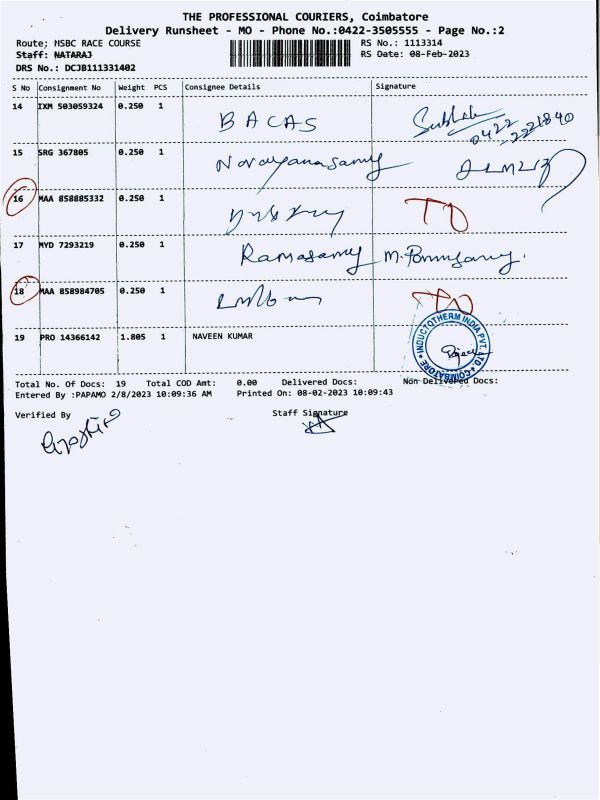 THE PROFESSIONAL COURIERS, Coimbatore
Delivery Runsheet - MO - Phone No.:0422-3505555 - Page No.:2
Route; HSBC RACE COURSE RS No.: 1113314
Staff: NATARAJ RS Date: 08-Feb-2023
DRS No.: DCJB111331402
S No Consignment No Weight PCS Consignee Details Signature
14 IXM 503059324 0.250 1 BACAS 0422 2221840
15 SRG 367805 0.250 1 Narayanasamy
16 MAA 858885332 0.250 1
17 MYD 7293219 0.250 1 Ramasamy M. Ponnusamy.
18 MAA 858984705 0.250 1
19 PRO 14366142 1.805 1 NAVEEN KUMAR
INDUCTOTHERM INDIA PVT. LTD * COIMBATORE *
Total No. Of Docs: 19 Total COD Amt: 0.00 Delivered Docs: Non Delivered Docs:
Entered By :PAPAMO 2/8/2023 10:09:36 AM Printed On: 08-02-2023 10:09:43
Verified By Staff Signature